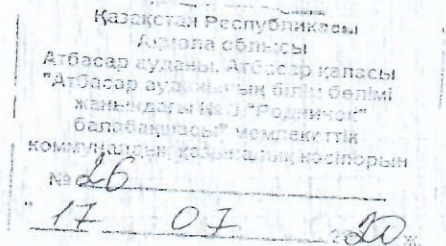 Қазақстан Республикасы
Ақмола облысы
Атбасар ауданы, Атбасар қаласы
"Атбасар ауданының білім бөлімі
жанындағы № 3 "Родничок"
балабақшасы" мемлекеттік
коммуналдық қазыналық кәсіпорын
№ 26
" 17 07 2020 ж.